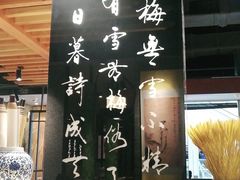 梅無雪不精
有雪無梅俗了
日暮詩成天